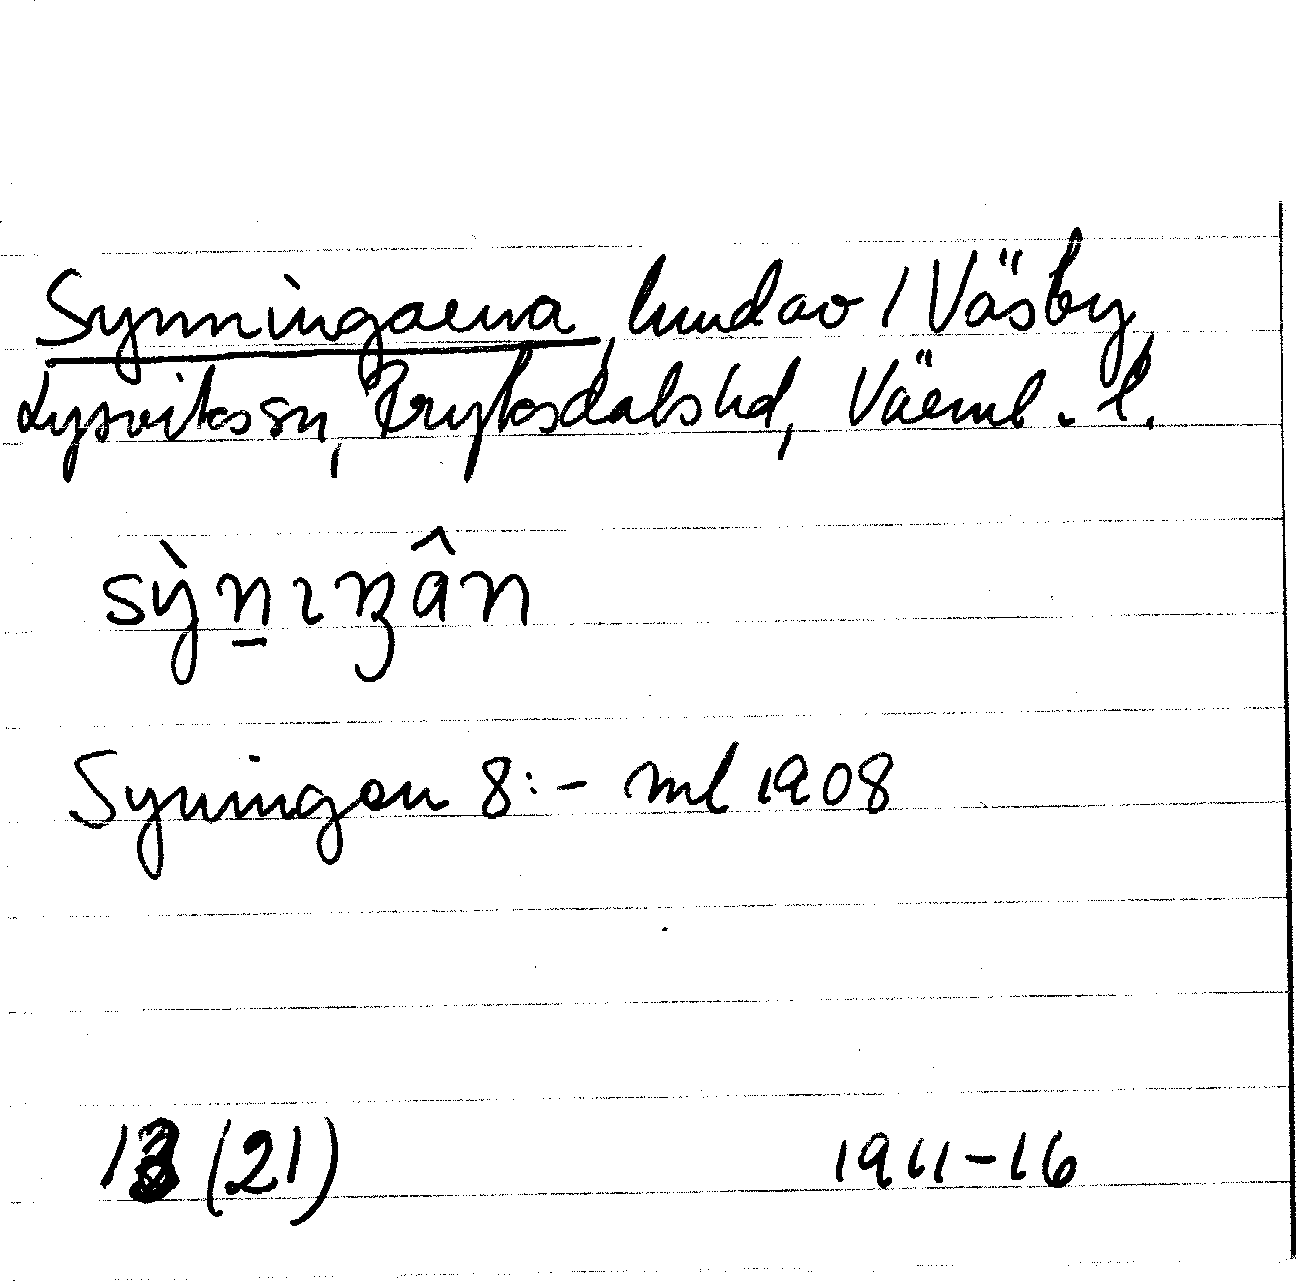 Synningarna, lundav / Väsby,
Lysvikssn, Fryksdalshd, Värml. l.
sỳn̠ıŋân
Synningan 8:- ml 1908
13 (21) 1911-16